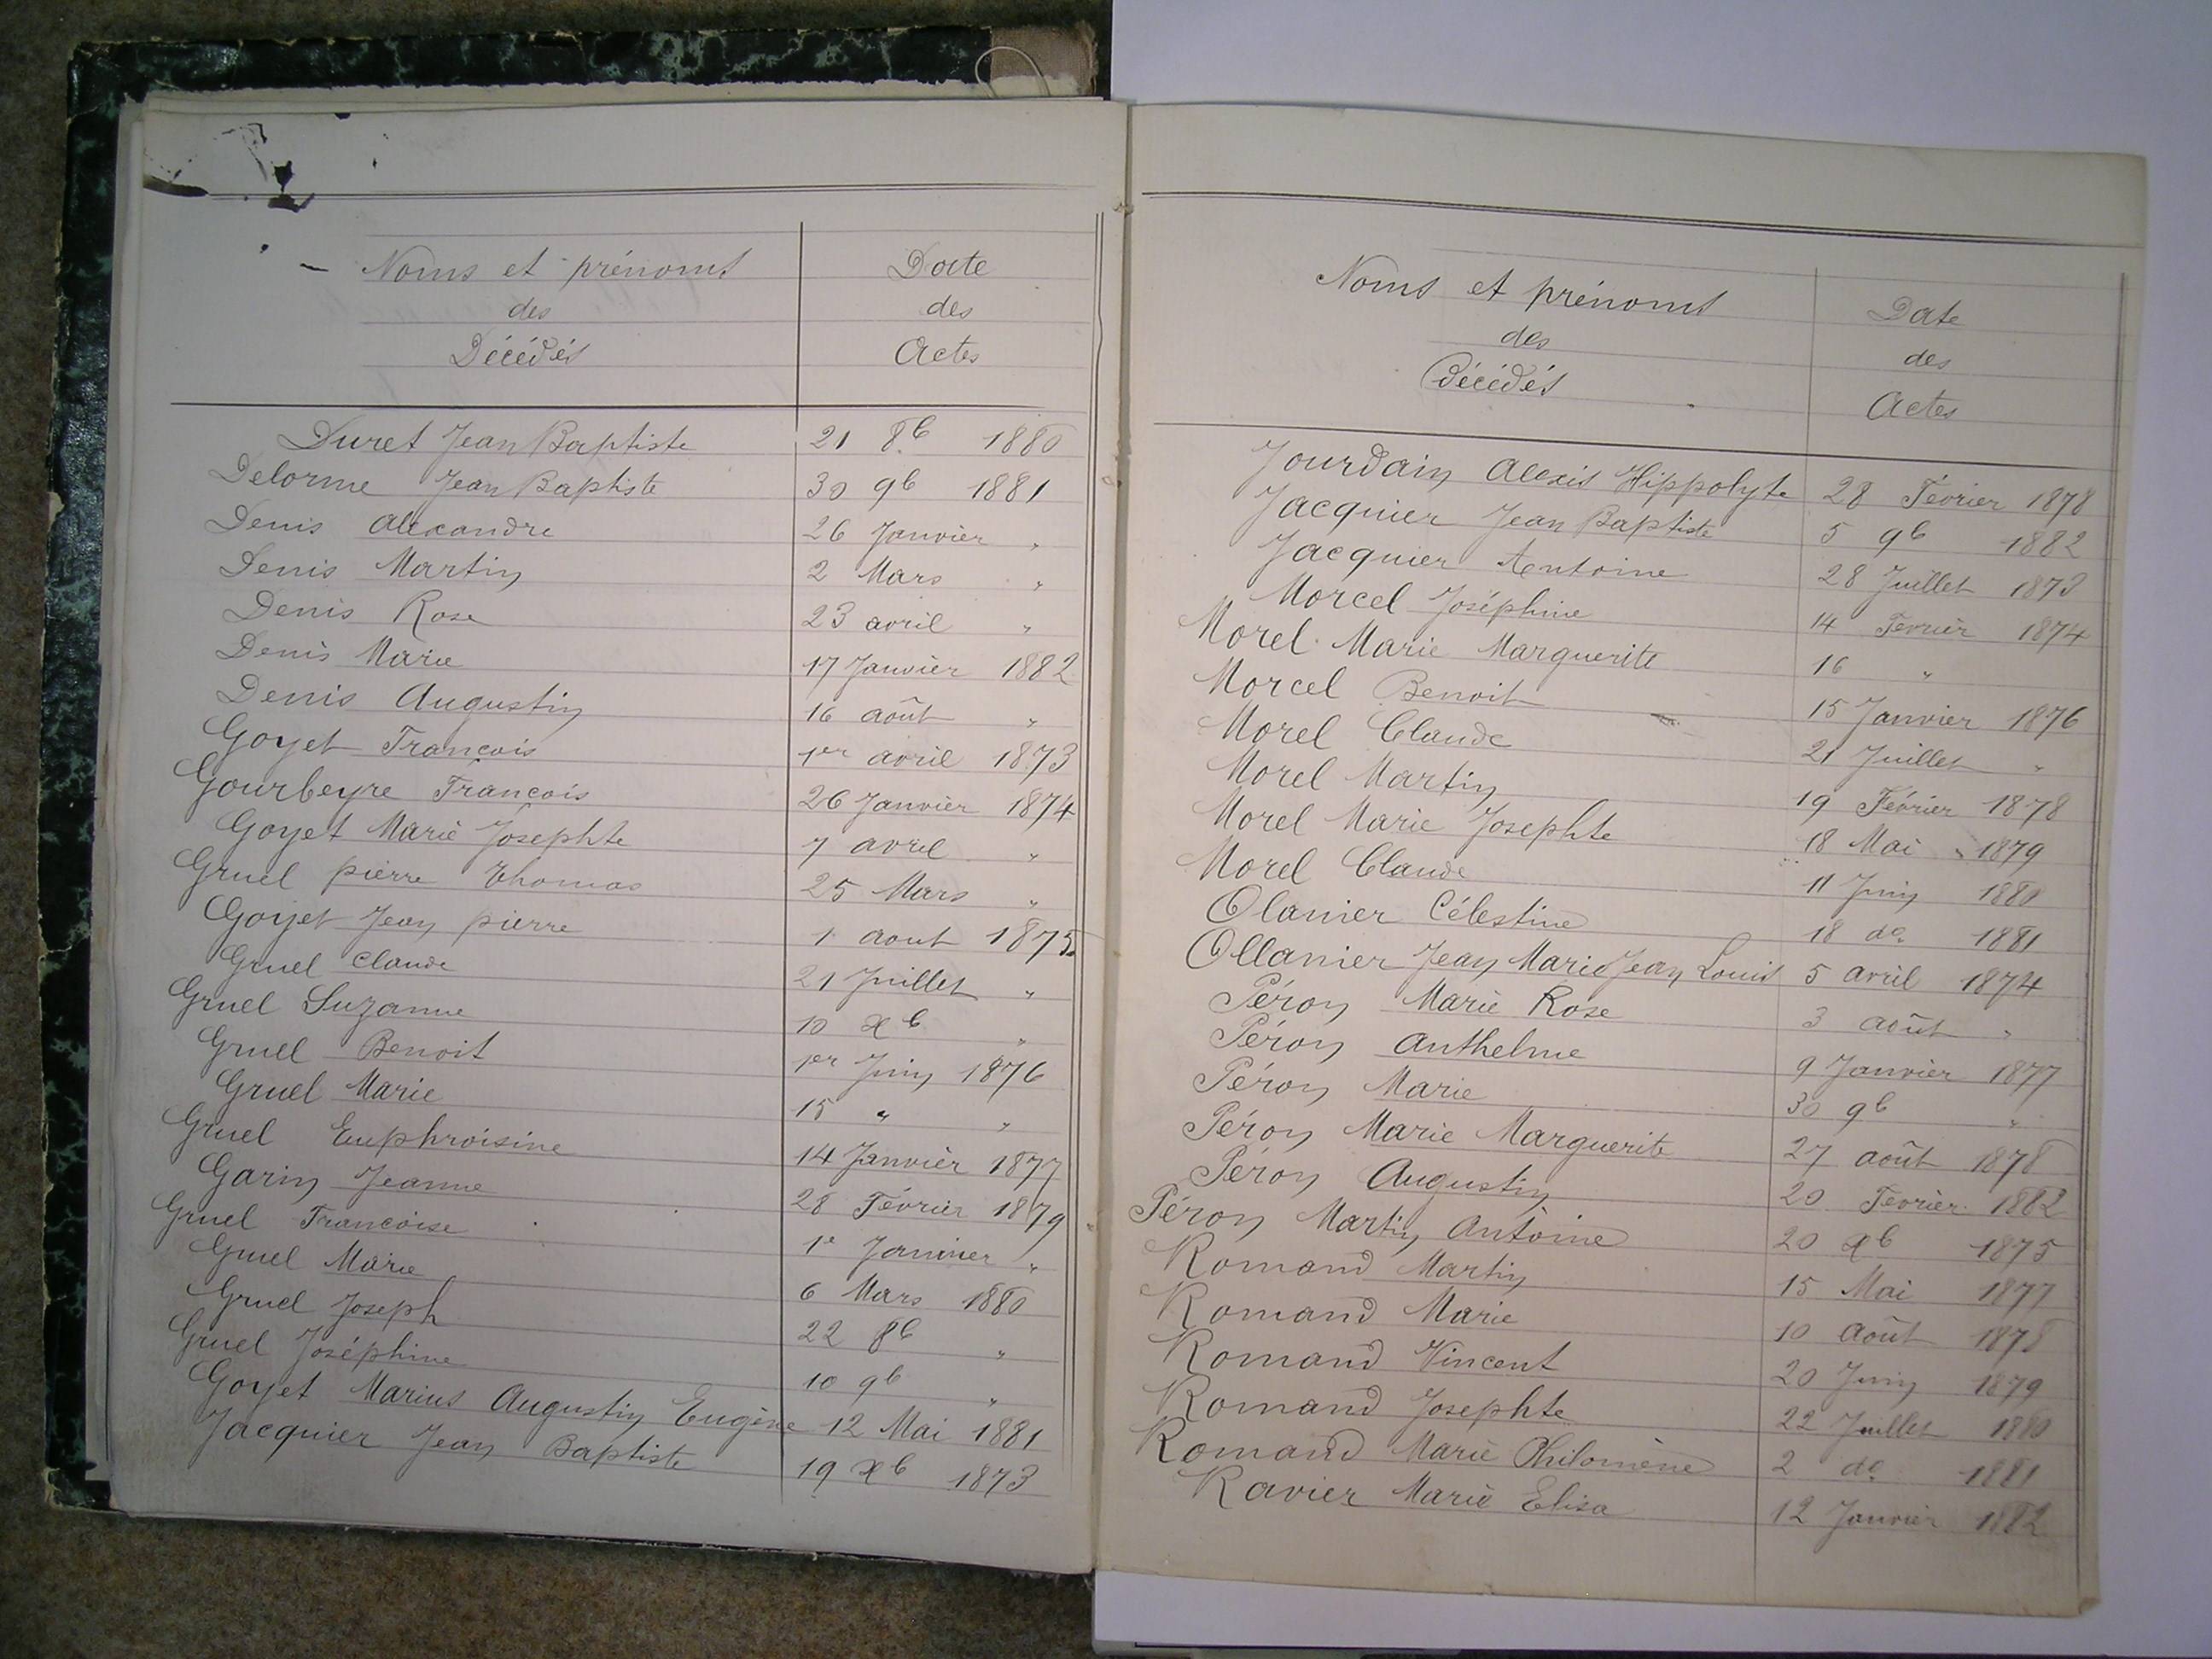 Noms et prénoms
des
Décédés
Date
des
Actes
Duret Jean Baptiste 21 8b 1880
Delorme Jean Baptiste 30 9b 1881
Denis Alexandre 26 Janvier "
Denis Martin 2 Mars "
Denis Rose 23 avril "
Denis Marie 17 Janvier 1882
Denis Augustin 16 août "
Goyet Francois 1er avril 1873
Gourbeyre Francois 26 Janvier 1874
Goyet Marie Josephte 7 avril "
Gruel pierre Thomas 25 Mars "
Goyet Jean pierre 1 aout 1875
Gruel Claude 21 Juillet "
Gruel Suzanne 10 xb "
Gruel Benoit 1er Juin 1876
Gruel Marie 15 " "
Gruel Euphroisine 14 Janvier 1877
Garin Jeanne 28 Février 1879
Gruel Francoise 1e Janvier "
Gruel Marie 6 Mars 1880
Gruel Joseph 22 8b "
Gruel Joséphine 10 9b "
Goyet Marius Augustin Eugène 12 Mai 1881
Jacquier Jean Baptiste 19 xb 1873
Noms et prénoms
des
Décédés
Date
des
Actes
Jourdain Alexis Hippolyte 28 Février 1878
Jacquier Jean Baptiste 5 9b 1882
Jacquier Antoine 28 Juillet 1873
Morcel Joséphine 14 Fevrier 1874
Morel Marie Marguerite 16 "
Morcel Benoit 15 Janvier 1876
Morel Claude 21 Juillet "
Morel Martin 19 Février 1878
Morel Marie Josephte 18 Mai 1879
Morel Claude 11 Juin 1880
Olanier Célestine 18 do 1881
Ollanier Jean Marie Jean Louis 5 avril 1874
Péron Marie Rose 3 août "
Péron Anthelme 9 Janvier 1877
Péron Marie 30 9b "
Péron Marie Marguerite 27 août 1878
Péron Augustin 20 Fevrier 1882
Péron Martin Antoine 20 xb 1875
Romand Martin 15 Mai 1877
Romand Marie 10 Août 1878
Romand Vincent 20 Juin 1879
Romand Josephte 22 Juillet 1880
Romand Marie Philomène 2 do 1881
Ravier Marie Elisa 12 Janvier 1882